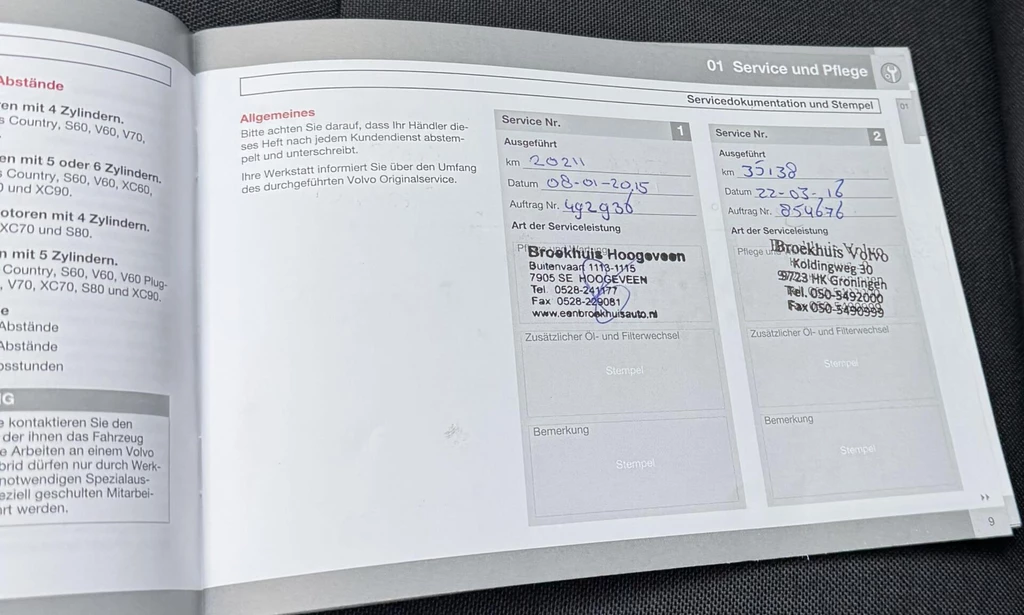 Abstände
en mit 4 Zylindern.
s Country, S60, V60, V70,
en mit 5 oder 6 Zylindern.
s Country, S60, V60, XC60,
0 und XC90.
otoren mit 4 Zylindern.
XC70 und S80.
n mit 5 Zylindern.
Country, S60, V60, V60 Plug-
, V70, XC70, S80 und XC90.
e
Abstände
Abstände
osstunden
G
e kontaktieren Sie den
der ihnen das Fahrzeug
e Arbeiten an einem Volvo
brid dürfen nur durch Werk-
notwendigen Spezialaus-
eziell geschulten Mitarbei-
rt werden.
01 Service und Pflege
Servicedokumentation und Stempel
01
Allgemeines
Bitte achten Sie darauf, dass Ihr Händler die-
ses Heft nach jedem Kundendienst abstem-
pelt und unterschreibt.
Ihre Werkstatt informiert Sie über den Umfang
des durchgeführten Volvo Originalservice.
Service Nr. 1
Ausgeführt
km 20211
Datum 08-01-2015
Auftrag Nr. 492936
Art der Serviceleistung
Broekhuis Hoogeveen
Buitenvaart 1113-1115
7905 SE HOOGEVEEN
Tel. 0528-241177
Fax 0528-229081
www.eenbroekhuisauto.nl
Zusätzlicher Öl- und Filterwechsel
Stempel
Bemerkung
Stempel
Service Nr. 2
Ausgeführt
km 35138
Datum 22-03-16
Auftrag Nr. 854676
Art der Serviceleistung
Pflege
Broekhuis Volvo
Koldingweg 30
9723 HK Groningen
Tel. 050-5492000
Fax 050-5490999
Zusätzlicher Öl- und Filterwechsel
Stempel
Bemerkung
Stempel
9